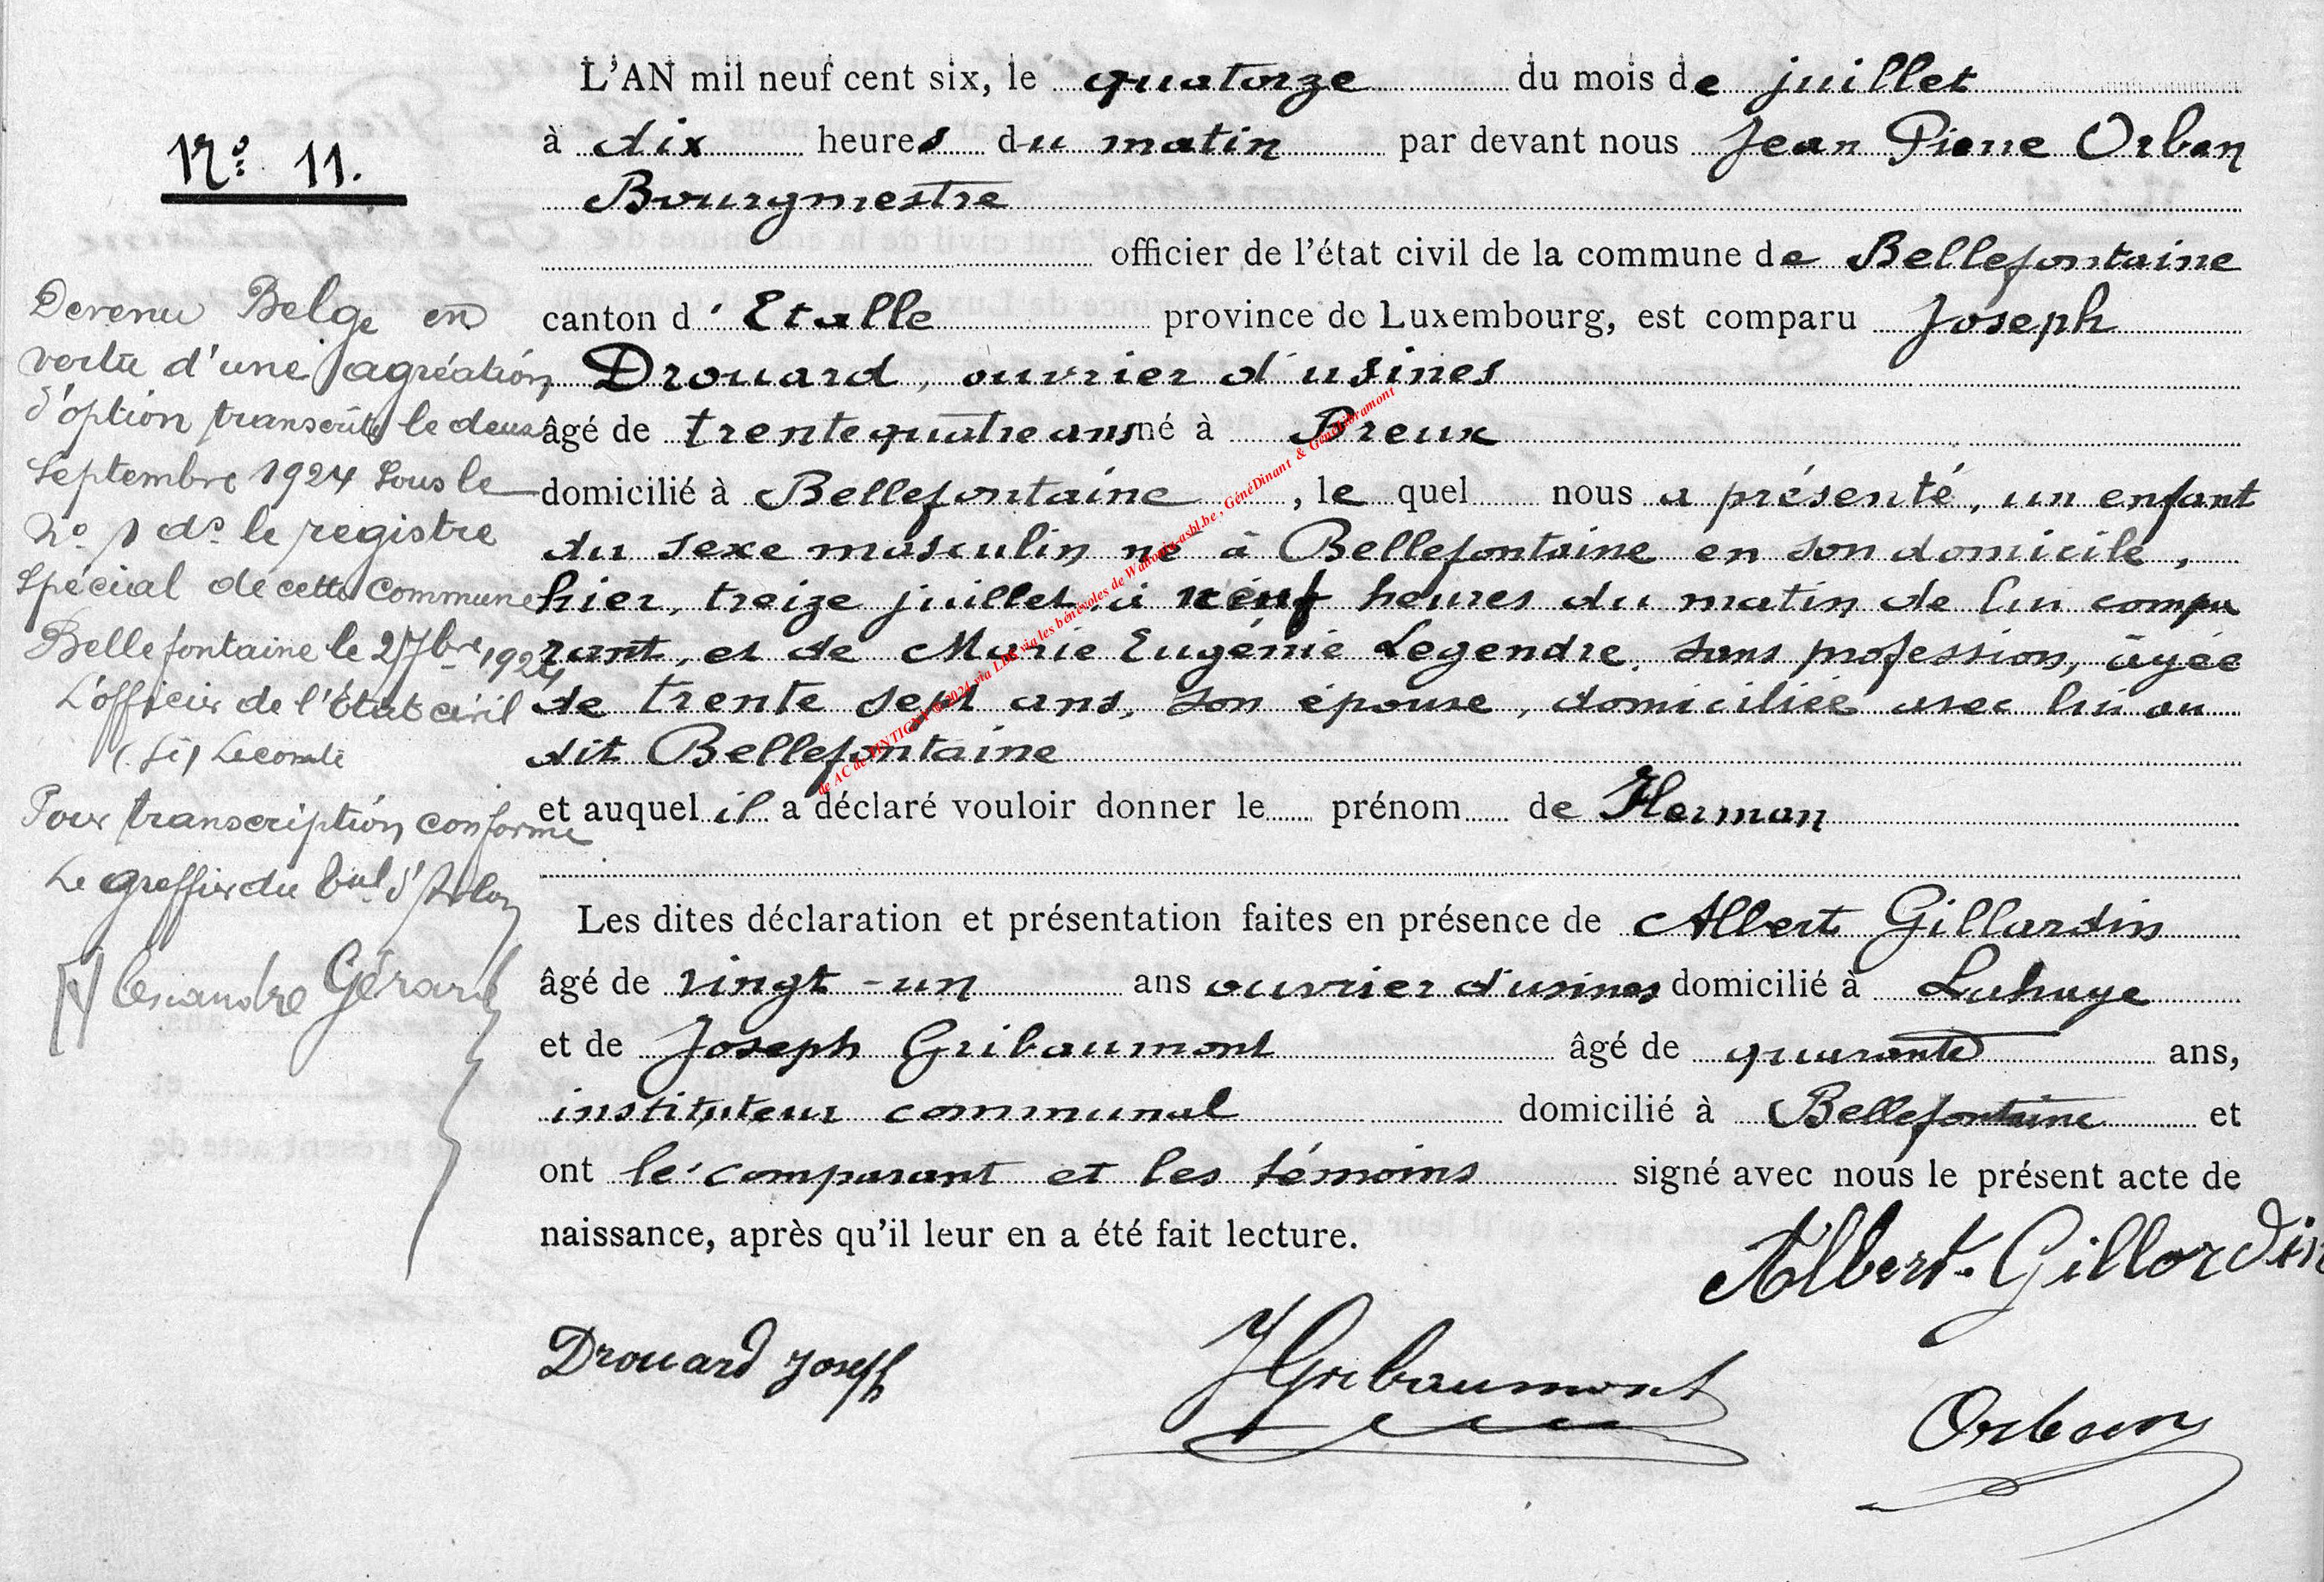 L'AN mil neuf cent six, le quatorze du mois de juillet
à dix heures du matin par devant nous Jean Pierre Orban
Bourgmestre
officier de l'état civil de la commune de Bellefontaine
canton d'Etalle province de Luxembourg, est comparu Joseph
Drouard, ouvrier d'usines
âgé de trente quatre ans né à Breux
domicilié à Bellefontaine, le quel nous a présenté, un enfant
du sexe masculin né à Bellefontaine en son domicile,
hier, treize juillet à neuf heures du matin de lui compa
rant, et de Marie Eugénie Legendre, sans profession, âgée
de trente sept ans, son épouse, domiciliée avec lui au
dit Bellefontaine
et auquel il a déclaré vouloir donner le prénom de Herman
Les dites déclaration et présentation faites en présence de Albert Gillardin
âgé de vingt-un ans ouvrier d'usines domicilié à Lahage
et de Joseph Gribaumont âgé de quarante ans,
instituteur communal domicilié à Bellefontaine et
ont le comparant et les témoins signé avec nous le présent acte de
naissance, après qu'il leur en a été fait lecture.
Albert Gillardin
Drouard Joseph
J Gribaumont
Orban
N° 11.
Devenu Belge en
vertu d'une agréation
d'option transcrite le deux
Septembre 1924 sous le
N° 1 ds le registre
Spécial de cette commune
Bellefontaine le 2 7bre 1924
L'officier de l'Etat civil
(sé) Lecomte
Pour transcription conforme
Le Greffier du bal d'Arlon
Gérard
de AC de TINTIGNY ©2024 via LDS via les bénévoles de Watrouta-asbl.be, GénéDinant & GénéLibramont